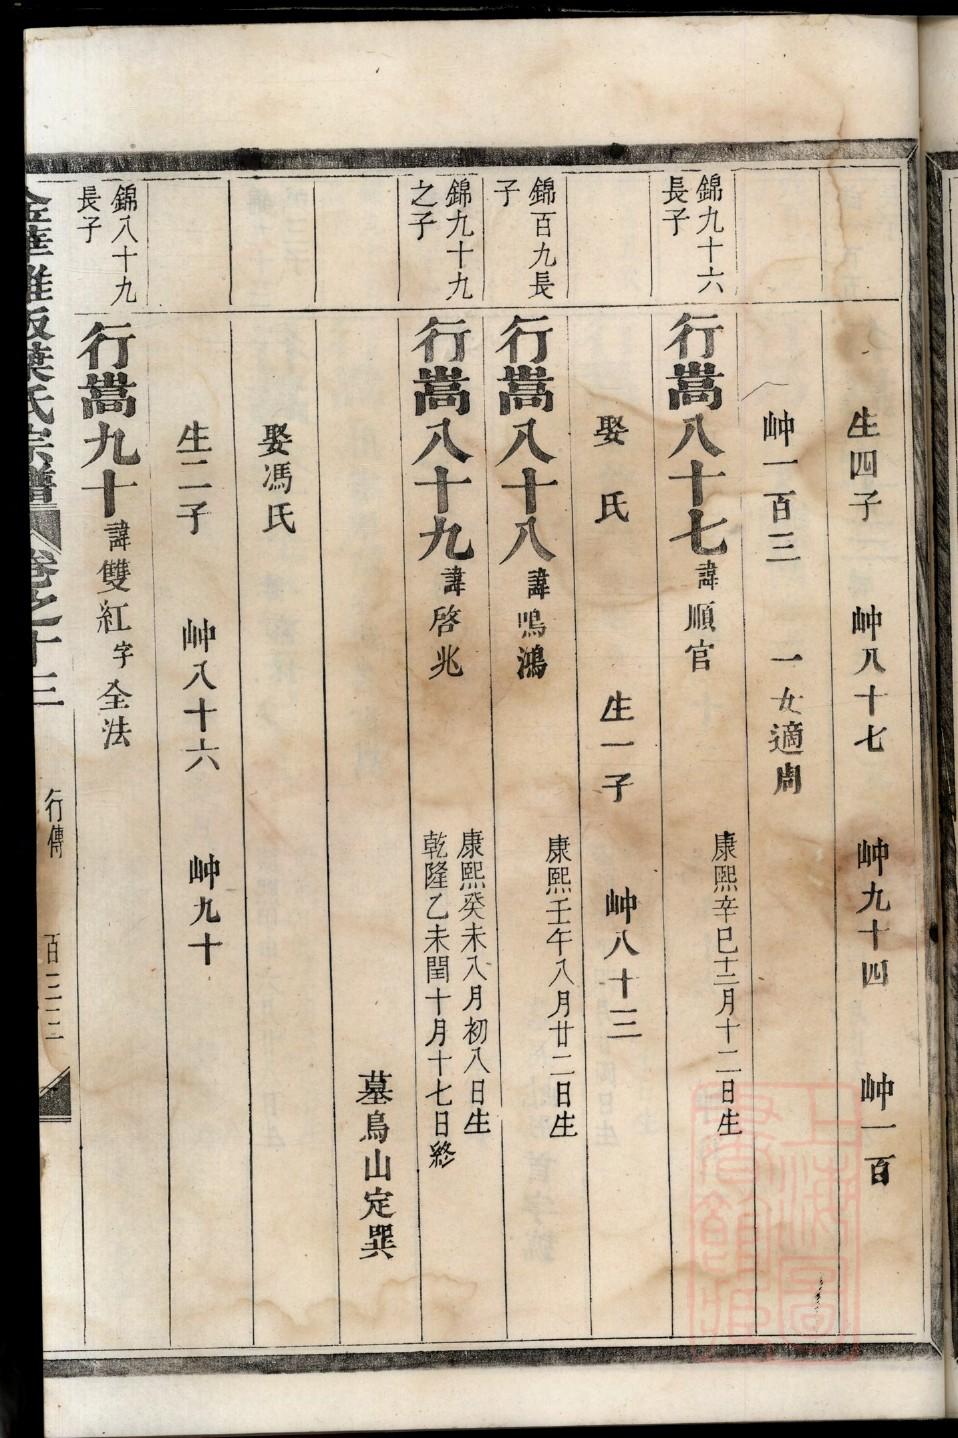 生四子　岫八十七　岫九十四　岫一百
岫一百三　一女適周
錦九十六
長子
行嵩八十七諱順官
康熙辛巳十二月十二日生
娶　氏　生一子　岫八十三
錦百九長
子
行嵩八十八諱鳴鴻
康熙壬午八月廿二日生
錦九十九
之子
行嵩八十九諱啓兆
康熙癸未八月初八日生
乾隆乙未閏十月十七日終
墓鳥山定巽
娶馮氏
生二子　岫八十六　岫九十
錦八十九
長子
行嵩九十諱雙紅字全法
金華雅畈葉氏宗譜　卷之十三　行傳　百三三